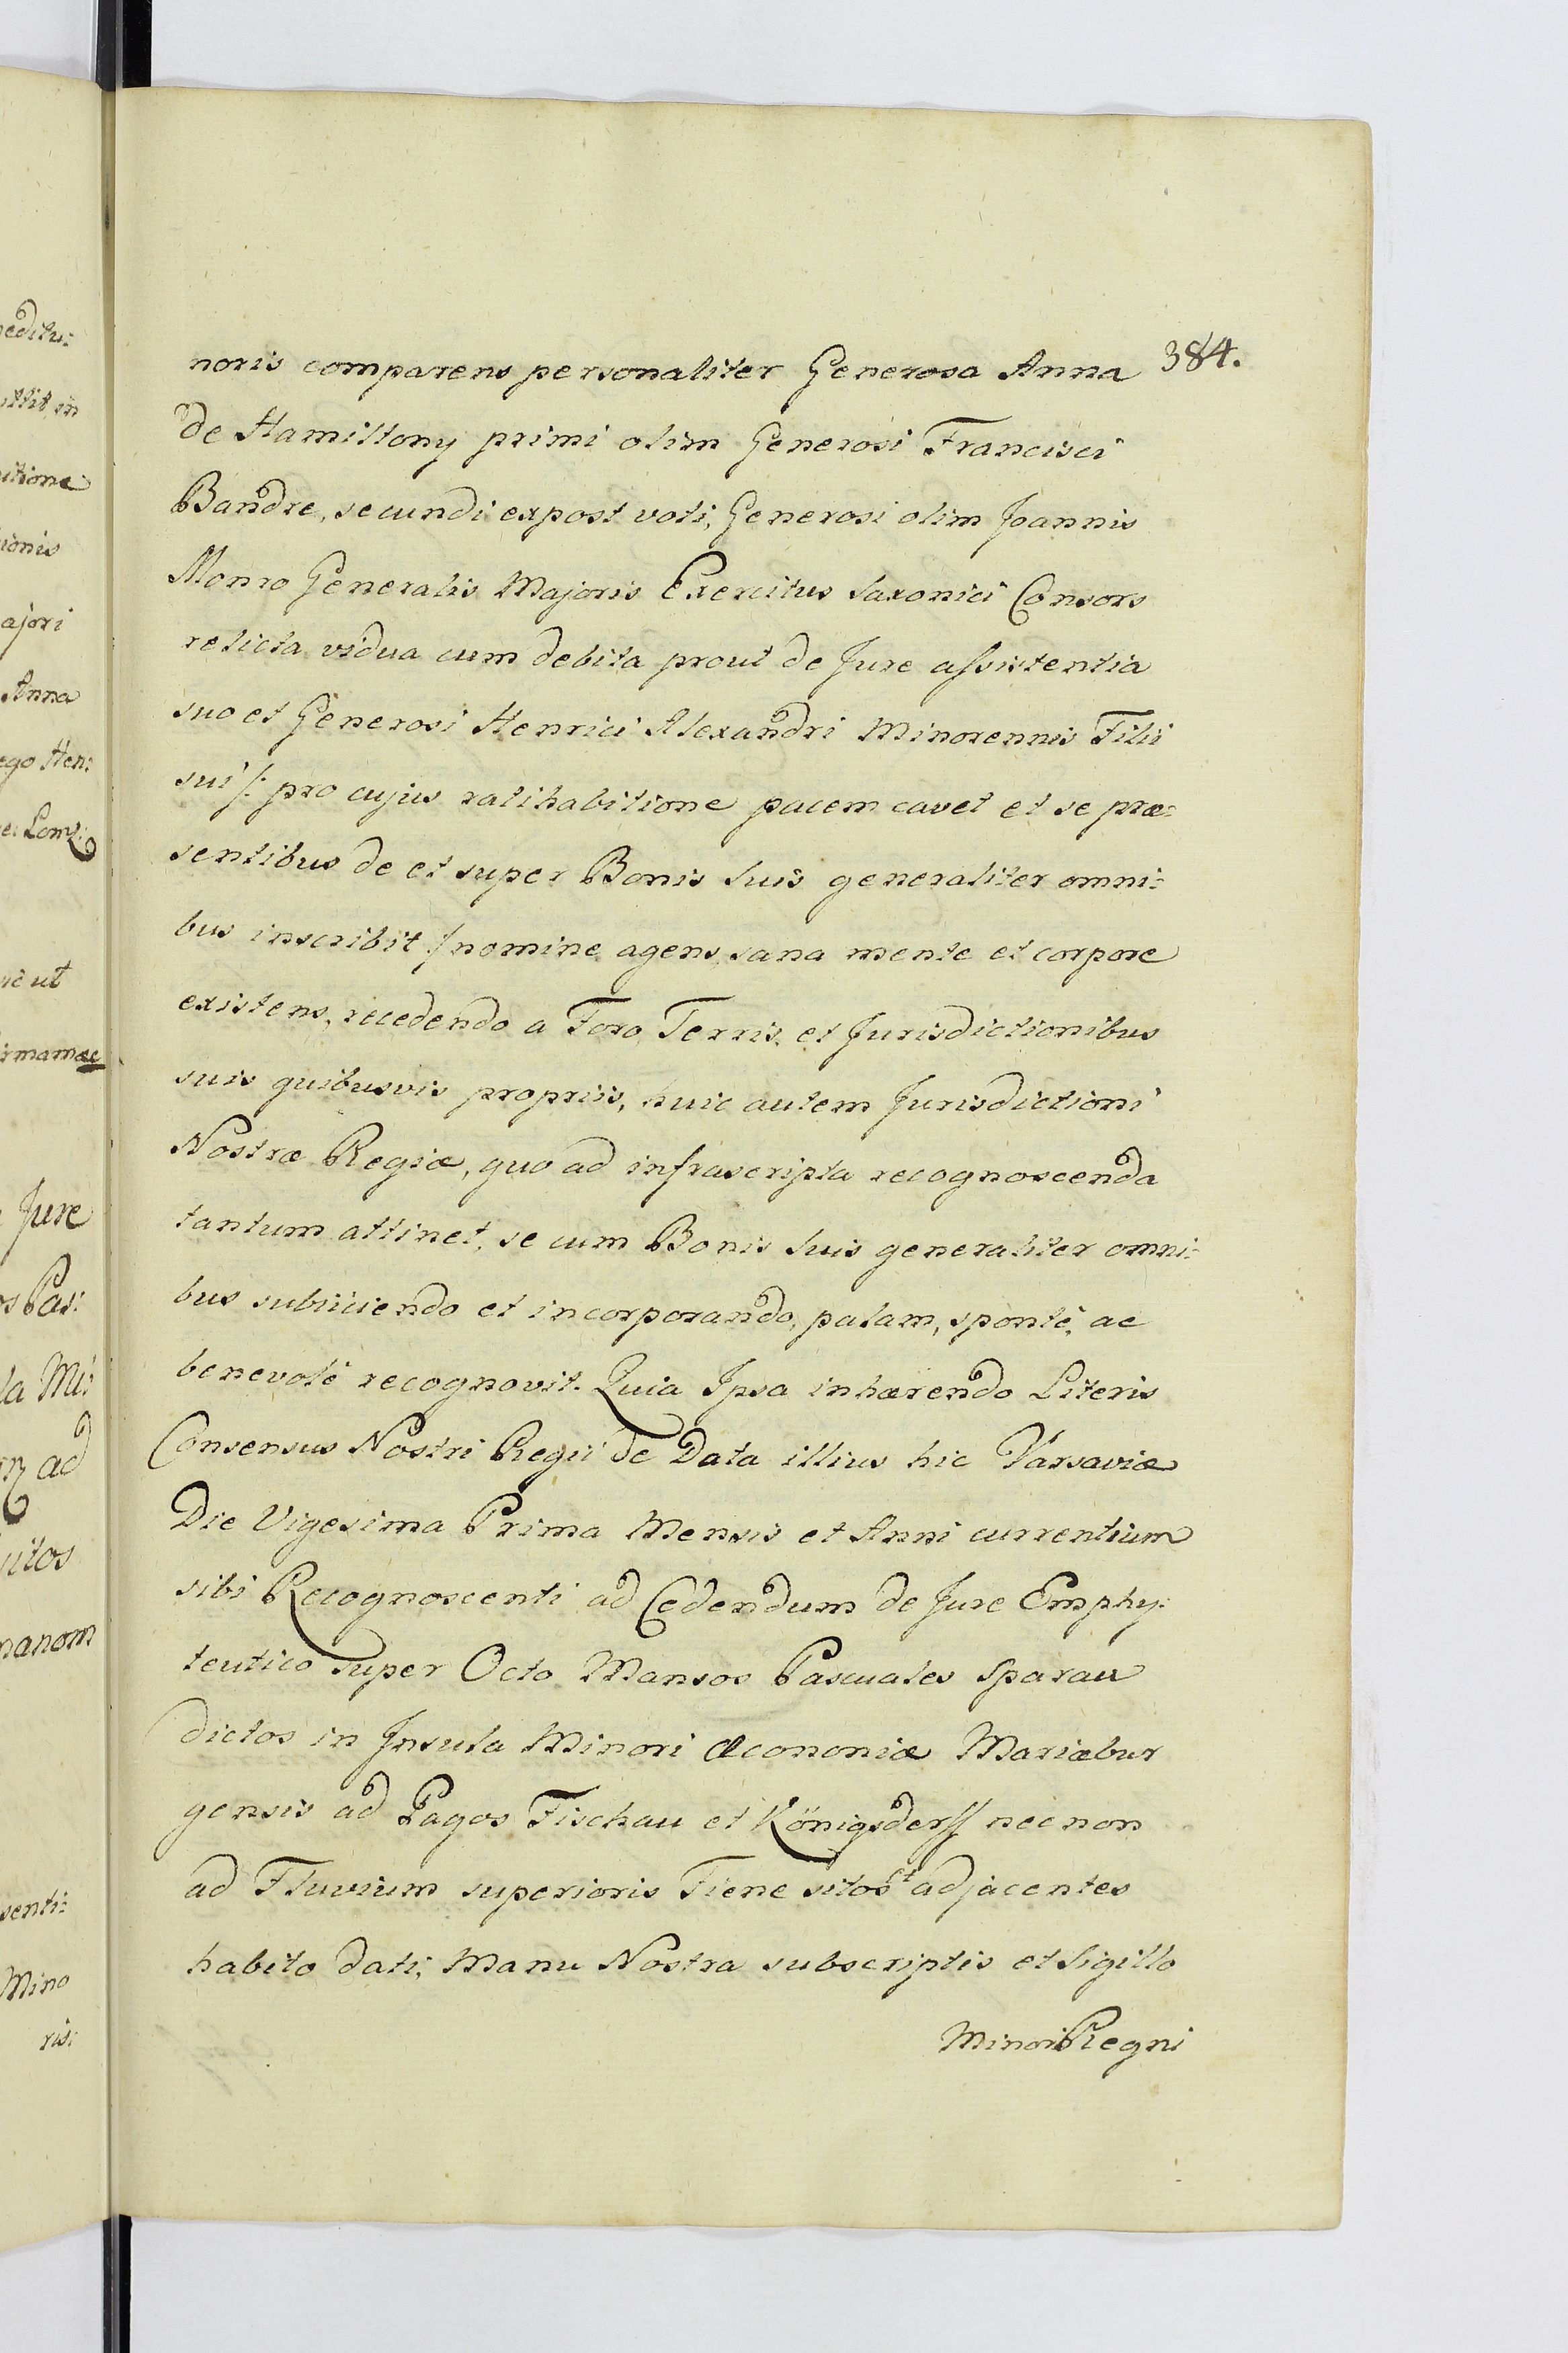 384.
noris comparens personaliter Generosa Anna
de Hamiltony primi olim Generosi Francisci
Bandre, secundi expost voti, Generosi olim Joannis
Monro Generalis Majoris Exercitus Saxonici Consors
relicta vidua cum debita prout de Jure assistentia
suo et Generosi Henrici Alexandri Minorennis Filii
sui /: pro cujus ratihabitione pacem cavet et se præ:
sentibus de et super Bonis Suis generaliter omni:
bus inscribit :/ nomine agens, sana mente et corpore
existens, recedendo a Foro, Terris, et Jurisdictionibus
suis quibusvis propriis, huic autem Jurisdictioni
Nostræ Regiæ, quo ad infrascripta recognoscenda
tantum attinet, se cum Bonis Suis generaliter omni:
bus subiiciendo et incorporando, palam, sponte, ac
benevole recognovit. Quia Ipsa inhærendo Literis
Consensus Nostri Regii de Data illius hic Varsaviæ
Die Vigesima Prima Mensis et Anni currentium
sibi Recognoscenti ad Cedendum de Jure Emphy:
teutico super Octo Mansos Pascuales Sparau
dictos in Insula Minori Œconomiæ Mariæbur
gensis ad Pagos Fischau et Königsderff nec non
ad Fluvium superioris Tiene sitos et adjacentes
habito dati, Manu Nostra subscriptis et Sigillo
Minori Regni